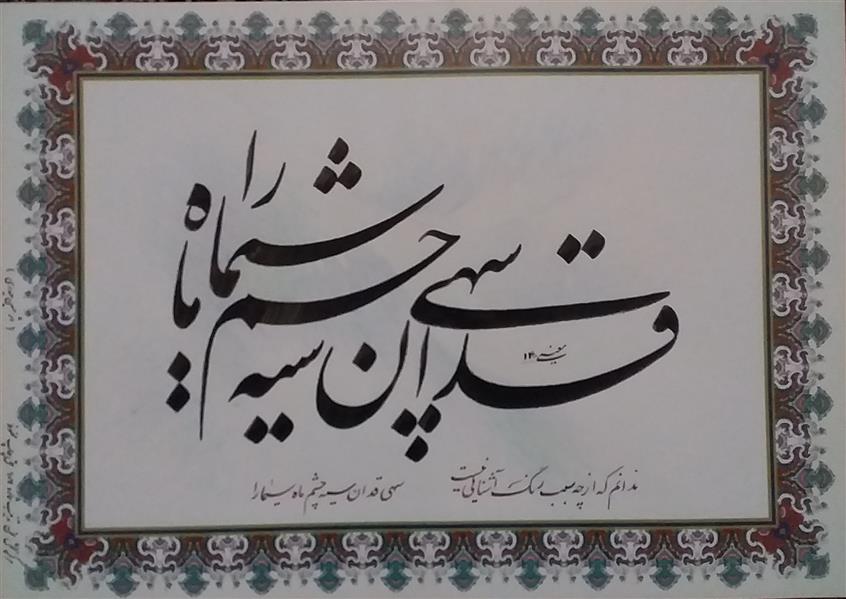 سهی قدان سیه چشم ماه سیما را
ندانم که از چه سبب رنگ آشنایی نیست
سهی قدان سیه چشم ماه سیما را